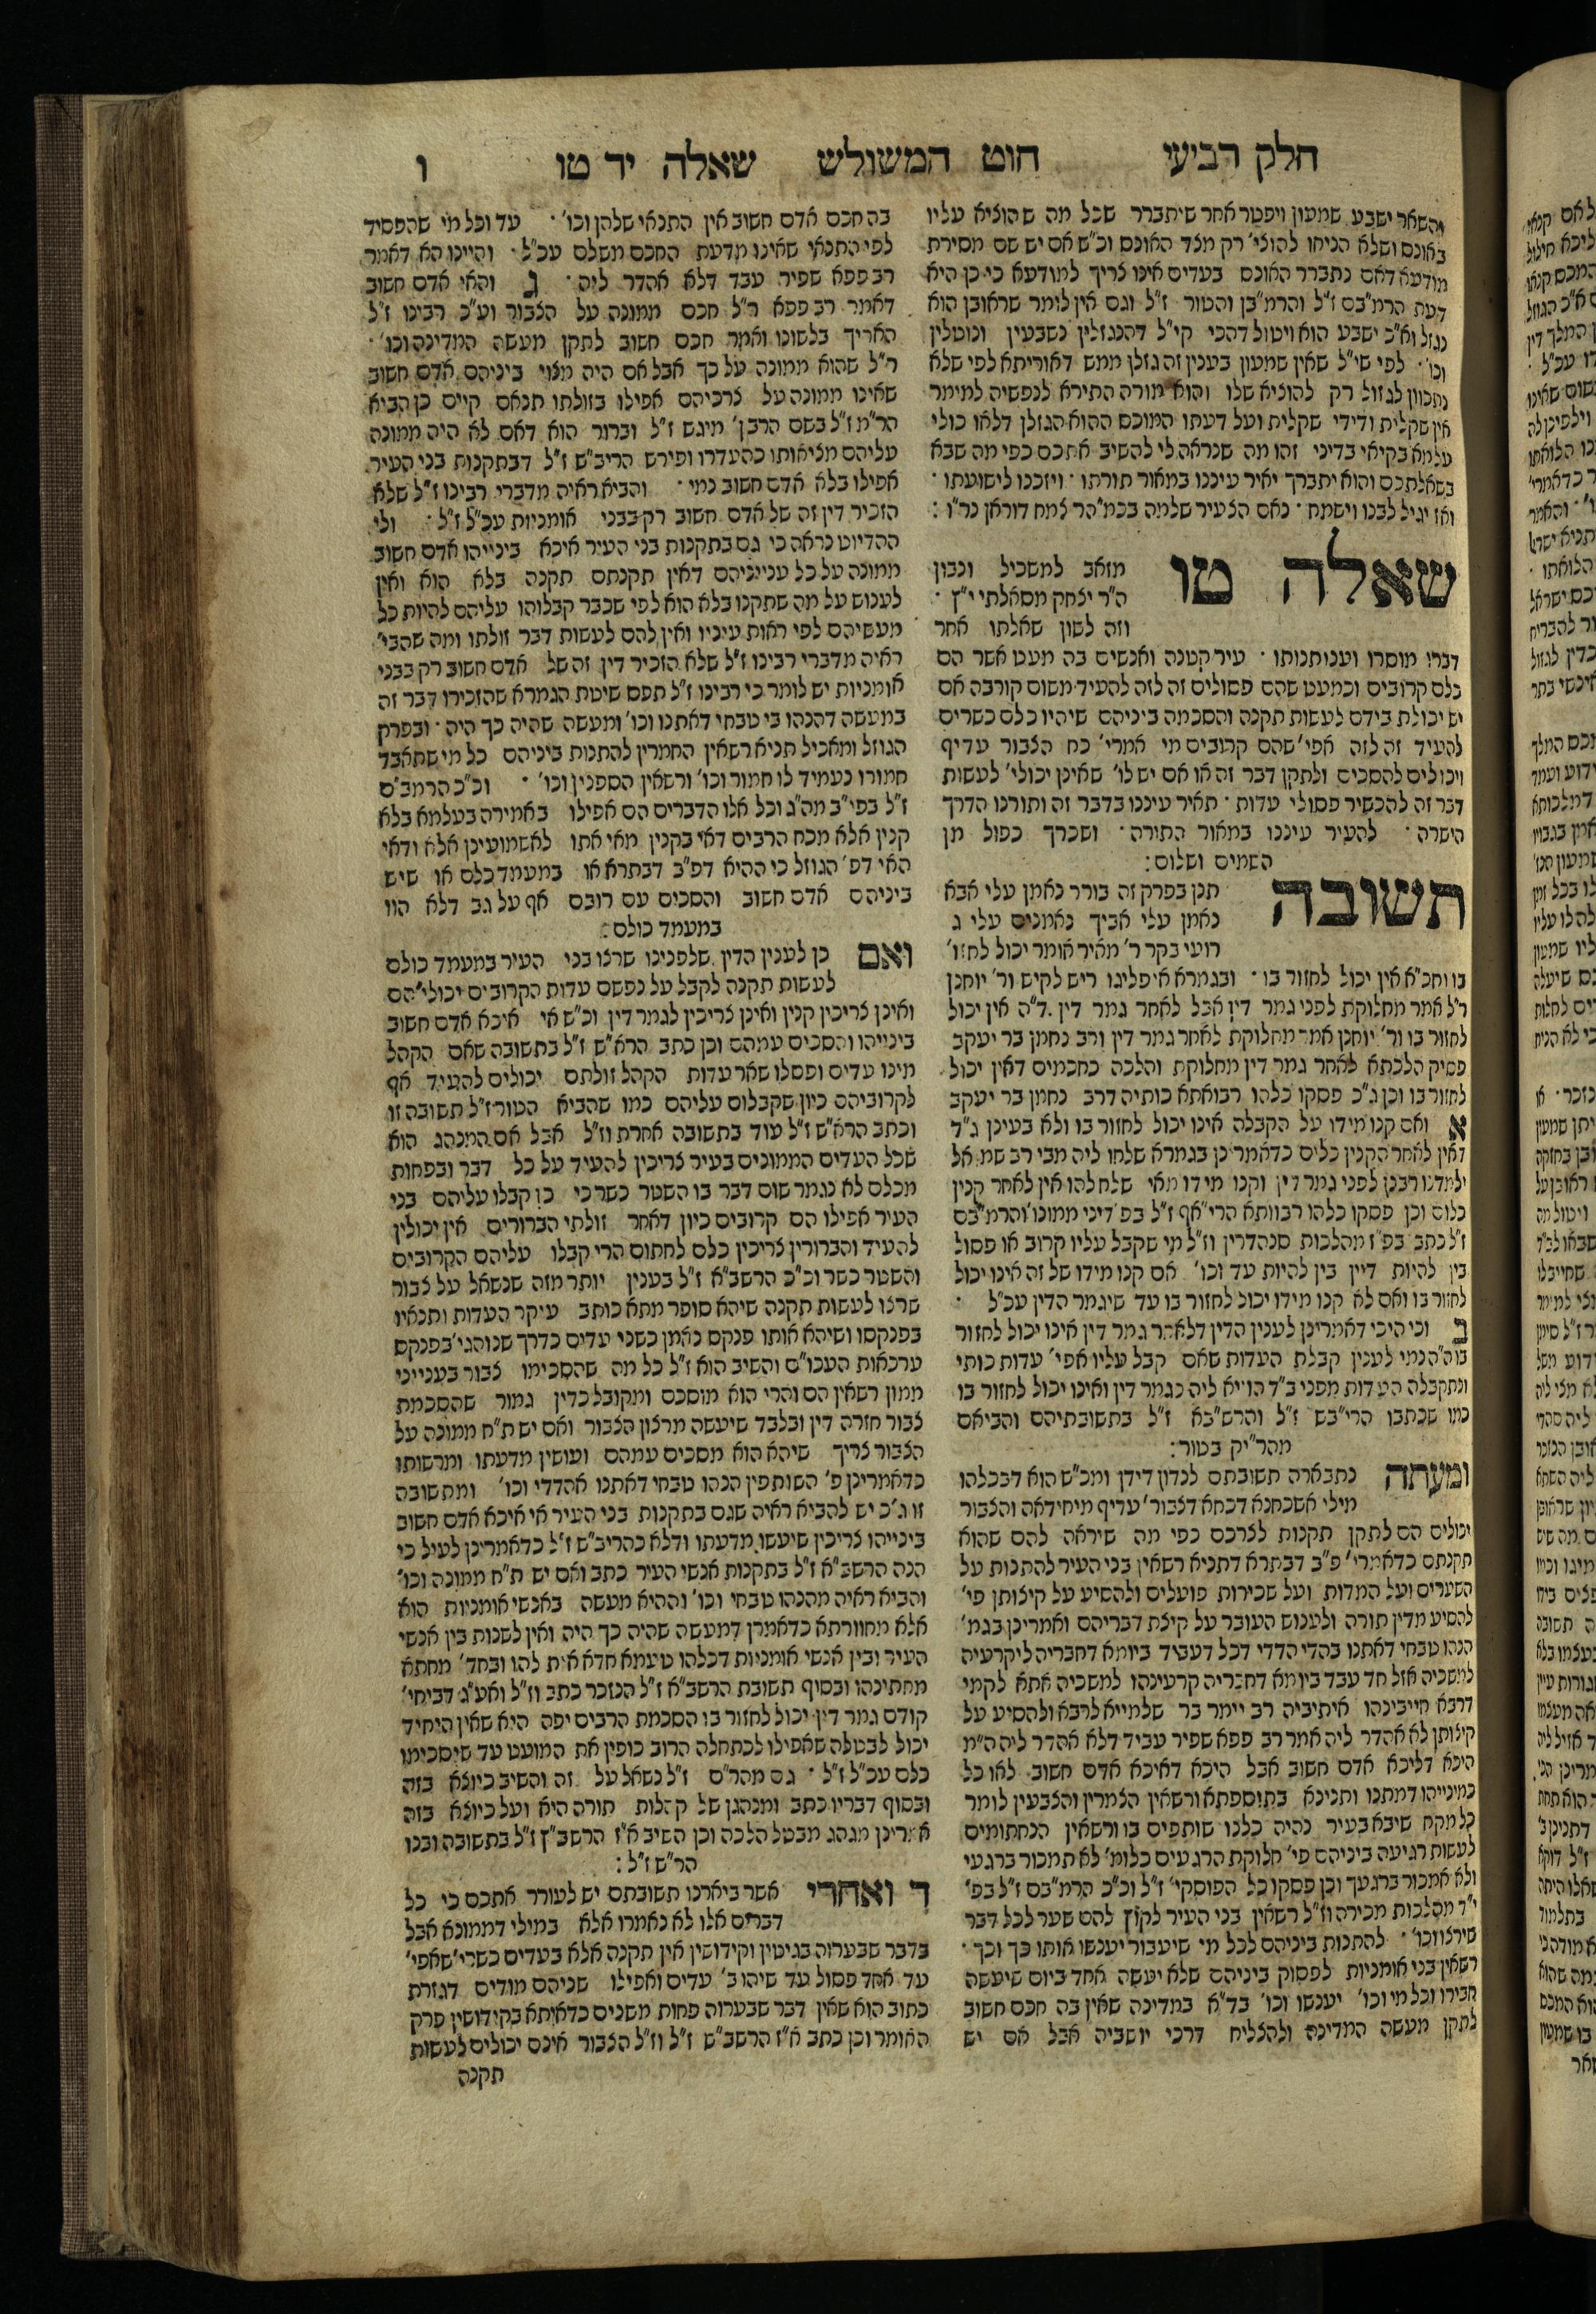 חלק רביעי חוט המשולש שאלה יד טו ו
והשאר ישבע שמעון ויפטר אחר שיתברר שכל מה שהוציא עליו
באונס ושלא הניחו להוצי' רק מצד האונס וכ"ש אם יש שם מסירת
מודעא דאם נתברר האונס בעדים אינו צריך למודעא כי כן היא
דעת הרמ"בם ז"ל והרמ"בן והטור ז"ל וגם אין לומר שראובן הוא
נגזל וא"כ ישבע הוא ויטול דהכי קי"ל דהנגזלין נשבעין ונוטלין
וכו' לפי שי"ל שאין שמעון בענין זה גזלן ממש דאוריתא לפי שלא
נתכוון לגזול רק להוציא שלו והוא מורה התירא לנפשיה למימר
אין שקלית ודידי שקלית ועל דעתו המוכס ההוא הגזלן דלאו כולי
עלמא בקיאי בדיני זהו מה שנראה לי להשיב אתכם כפי מה שבא
בשאלתכם והוא יתברך יאיר עיננו במאור תורתו · ויזכנו לישועתו ·
ואז יגיל לבנו וישמח · נאם הצעיר שלמה בכמ"הר צמח דוראן נר"ו :
שאלה טו
מזאב למשכיל ונבון
ה"ר יצחק מסאלתי י"ץ ·
וזה לשון שאלתו אחר
דברי מוסרו וענותנותו · עיר קטנה ואנשים בה מעט אשר הם
כלם קרובים וכמעט שהם פסולים זה לזה להעיד משום קורבה אם
יש יכולת בידם לעשות תקנה והסכמה ביניהם שיהיו כלם כשרים
להעיד זה לזה אפי' שהם קרובים מי אמרי' כח הצבור עדיף
ויכולים להסכים ולתקן דבר זה או אם יש לו' שאינן יכולי' לעשות
דבר זה להכשיר פסולי עדות · תאיר עיננו בדבר זה ותורנו הדרך
הישרה · להעיר עיננו במאור התורה · ושכרך כפול מן
השמים ושלום :
תשובה
תנן בפרק זה בורר נאמן עלי אבא
נאמן עלי אביך נאמנים עלי ג
רועי בקר ר' מאיר אומר יכול לחזו'
בו וחכ"א אין יכול לחזור בו · ובגמרא איפליגו ריש לקיש ור' יוחנן
ר"ל אמר מחלוקת לפני גמר דין אבל לאחר גמר דין ד"ה אין יכול
לחזור בו ור' יוחנן אמר מחלוקת לאחר גמר דין ורב נחמן בר יעקב
פסיק הלכתא לאחר גמר דין מחלוקת והלכה כחכמים דאין יכול
לחזור בו וכן ג"כ פסקו כלהו רבואתא כותיה דרב נחמן בר יעקב
א ואם קנו מידו על הקבלה אינו יכול לחזור בו ולא בעינן ג"ד
דאין לאחר הקנין כלים כדאמרינן בגמרא שלחו ליה מבי רב שמואל
ילמדנו רבנן לפני גמר דין וקנו מידו מאי שלח להו אין לאחר קנין
כלום וכן פסקו כלהו רבוותא הרי"אף ז"ל בפ' דיני ממונו' והרמ"בם
ז"ל כתב בפ"ז מהלכות סנהדרין וז"ל מי שקבל עליו קרוב או פסול
בין להיות דיין בין להיות עד וכו' אם קנו מידו של זה אינו יכול
לחזור בו ואם לא קנו מידו יכול לחזור בו עד שיגמר הדין עכ"ל ·
ב וכי היכי דאמרינן לענין הדין דלאחר גמר דין אינו יכול לחזור
בו ה"ה נמי לענין קבלת העדות שאם קבל עליו אפי' עדות כותי
ונתקבלה העדות מפני ב"ד הויא ליה כגמר דין ואינו יכול לחזור בו
כמו שכתבו הרי"בש ז"ל והרש"בא ז"ל בתשובתיהם והביאם
מהר"יק בטור :
ומעתה נתבארה תשובתם לנדון דידן ומכ"ש הוא דבכלהו
מילי אשכחנא דכחא דצבור' עדיף מיחידאה והצבור
יכולים הם לתקן תקנות לצרכם כפי מה שיראה להם שהוא
תקנתם כדאמרי' פ"ב דבתרא דתניא רשאין בני העיר להתנות על
השערים ועל המדות ועל שכירות פועלים ולהסיע על קיצותן פי'
להסיע מדין תורה ולענוש העובר על קיצת דבריהם ואמרינן בגמ'
הנהו טבחי דאתנו בהדי הדדי דכל דעביד ביומא דחבריה ליקרעיה
למשכיה אזל חד עבד ביומא דחבריה קרעינהו למשכיה אתא לקמי
דרבא חייבינהו איתיביה רב יימר בר שלמייא לרבא ולהסיע על
קיצותן לא אהדר ליה אמר רב פפא שפיר עביד דלא אהדר ליה ה"מ
היכא דליכא אדם חשוב אבל היכא דאיכא אדם חשוב לאו כל
כמינייהו דמתנו ותניא בתוספתא ורשאין הצמרין והצבעין לומר
כל מקח שיבא בעיר נהיה כלנו שותפים בו ורשאין הנחתומים
לעשות רגיעה ביניהם פי' חלוקת הרגעים כלומ' לא תמכור ברגעי
ולא אמכור ברגעך וכן פסקו כל הפוסקי' ז"ל וכ"כ הרמ"בם ז"ל בפ'
י"ד מהלכות מכירה וז"ל רשאין בני העיר לקוץ להם שער לכל דבר
שירצו וכו' · להתנות ביניהם לכל מי שיעבור יענשו אותו כך וכך ·
רשאין בני אומניות לפסוק ביניהם שלא יעשה אחד ביום שיעשה
חבירו וכל מי וכו' יענשו וכו' בד"א במדינה שאין בה חכם חשוב
לתקן מעשה המדינה ולהצליח דרכי יושביה אבל אם יש
בה חכם אדם חשוב אין התנאי שלהן וכו' · עד וכל מי שהפסיד
לפי התנאי שאינו מדעת החכם משלם עכ"ל · והיינו הא דאמר
רב פפא שפיר עבד דלא אהדר ליה · ג והאי אדם חשוב
דאמר רב פפא ר"ל חכם ממונה על הצבור וע"כ רבינו ז"ל
האריך בלשונו ואמר חכם חשוב לתקן מעשה המדינה וכו' ·
ר"ל שהוא ממונה על כך אבל אם היה מצוי ביניהם אדם חשוב
שאינו ממונה על צרכיהם אפילו בזולתו תנאם קיים כן הביא
הר"מ ז"ל בשם הר"בן' מיגש ז"ל וברור הוא דאם לא היה ממונה
עליהם מציאותו כהעדרו ופירש הריב"ש ז"ל דבתקנות בני העיר
אפילו בלא אדם חשוב נמי · והביא ראיה מדברי רבינו ז"ל שלא
הזכיר דין זה של אדם חשוב רק בבני אומניות עכ"ל ז"ל · ולי
ההדיוט נראה כי גם בתקנות בני העיר איכא ביניייהו אדם חשוב
ממונה על כל עניניהם דאין תקנתם תקנה בלא הוא ואין
לענוש על מה שתקנו בלא הוא לפי שכבר קבלוהו עליהם להיות כל
מעשיהם לפי ראות עיניו ואין להם לעשות דבר זולתו ומה שהבי'
ראיה מדברי רבינו ז"ל שלא הזכיר דין זה של אדם חשוב רק בבני
אומניות יש לומר כי רבינו ז"ל תפס שיטת הגמרא שהזכירו דבר זה
במעשה דהנהו בי טבחי דאתנו וכו' ומעשה שהיה כך היה · ובפרק
הגוזל ומאכיל תניא רשאין החמרין להתנות ביניהם כל מי שתאבד
חמורו נעמיד לו חמור וכו' ורשאין הספנין וכו' · וכ"כ הרמב"ם
ז"ל בפי"ב מה"ג וכל אלו הדברים הם אפילו באמירה בעלמא בלא
קנין אלא מכח הרבים דאי בקנין מאי אתו לאשמועינן אלא ודאי
האי דפ' הגוזל כי ההיא דפ"ב דבתרא או במעמד כלם או שיש
ביניהם אדם חשוב והסכים עם רובם אף על גב דלא הוו
במעמד כולם :
ואם כן לענין הדין שלפנינו שרצו בני העיר במעמד כולם
לעשות תקנה לקבל על נפשם עדות הקרובים יכולי' הם
ואינן צריכין קנין ואינן צריכין לגמר דין וכ"ש אי איכא אדם חשוב
בינייהו והסכים עמהם וכן כתב הרא"ש ז"ל בתשובה שאם הקהל
מינו עדים ופסלו שאר עדות הקהל זולתם יכולים להעיד אף
לקרוביהם כיון שקבלום עליהם כמו שהביא הטור ז"ל תשובה זו
וכתב הרא"ש ז"ל עוד בתשובה אחרת וז"ל אבל אם המנהג הוא
שכל העדים הממונים בעיר צריכין להעיד על כל דבר ובפחות
מכלם לא נגמר שום דבר בו השטר כשר כי כן קבלו עליהם בני
העיר אפילו הם קרובים כיון דאחר זולתי הברורים אין יכולין
להעיד והברורין צריכין כלם לחתום הרי קבלו עליהם הקרובים
והשטר כשר וכ"כ הרשב"א ז"ל בענין יותר מזה שנשאל על צבור
שרצו לעשות תקנה שיהא סופר מתא כותב עיקר העדות ותנאיו
בפנקסו ושיהא אותו פנקס נאמן כשני עדים כדרך שנוהגי' בפנקס
ערכאות העכו"ם והשיב הוא ז"ל כל מה שהסכימו צבור בענייני
ממון רשאין הם והרי הוא מוסכם ומקובל כדין גמור שהסכמת
צבור חזרה דין ובלבד שיעשה מרצון הצבור ואם יש ת"ח ממונה על
הצבור צריך שיהא הוא מסכים עמהם ועושין מדעתו ומרשותו
כדאמרינן פ' השותפין הנהו טבחי דאתנו אהדדי וכו' ומתשובה
זו ג"כ יש להביא ראיה שגם בתקנות בני העיר אי איכא אדם חשוב
בינייהו צריכין שיעשו מדעתו ודלא כהריב"ש ז"ל כדאמרינן לעיל כי
הנה הרשב"א ז"ל בתקנות אנשי העיר כתב ואם יש ת"ח ממונה וכו'
והביא ראיה מהנהו טבחי וכו' וההיא מעשה באנשי אומניות הוא
אלא מחוורתא כדאמרן דמעשה שהיה כך היה ואין לשנות בין אנשי
העיר ובין אנשי אומניות דכלהו טעמא חדא אית להו ובחד' מחתא
מחתינהו ובסוף תשובת הרשב"א ז"ל הנזכר כתב וז"ל ואע"ג דביחי'
קודם גמר דין יכול לחזור בו הסכמת הרבים יפה היא שאין היחיד
יכול לבטלה שאפילו לכתחלה הרוב כופין את המועט עד שיסכימו
כלם עכ"ל ז"ל · גם מהר"ם ז"ל נשאל על זה והשיב כיוצא בזה
ובסוף דבריו כתב ומנהגן של קהלות תורה היא ועל כיוצא בזה
אמרינן מנהג מבטל הלכה וכן השיב א"ז הרשב"ץ ז"ל בתשובה ובנו
הר"ש ז"ל :
ד ואחרי אשר ביארנו תשובתם יש לעורר אתכם כי כל
דברים אלו לא נאמרו אלא במילי דממונא אבל
בדבר שבערוה בגיטין וקידושין אין תקנה אלא בעדים כשרי' שאפי'
עד אחד פסול עד שיהו ב' עדים ואפילו שניהם מודים דגזרת
כתוב הוא שאין דבר שבערוה פחות משנים כדאיתא בקידושין פרק
האומר וכן כתב א"ז הרשב"ש ז"ל וז"ל הצבור אינם יכולים לעשות
תקנה